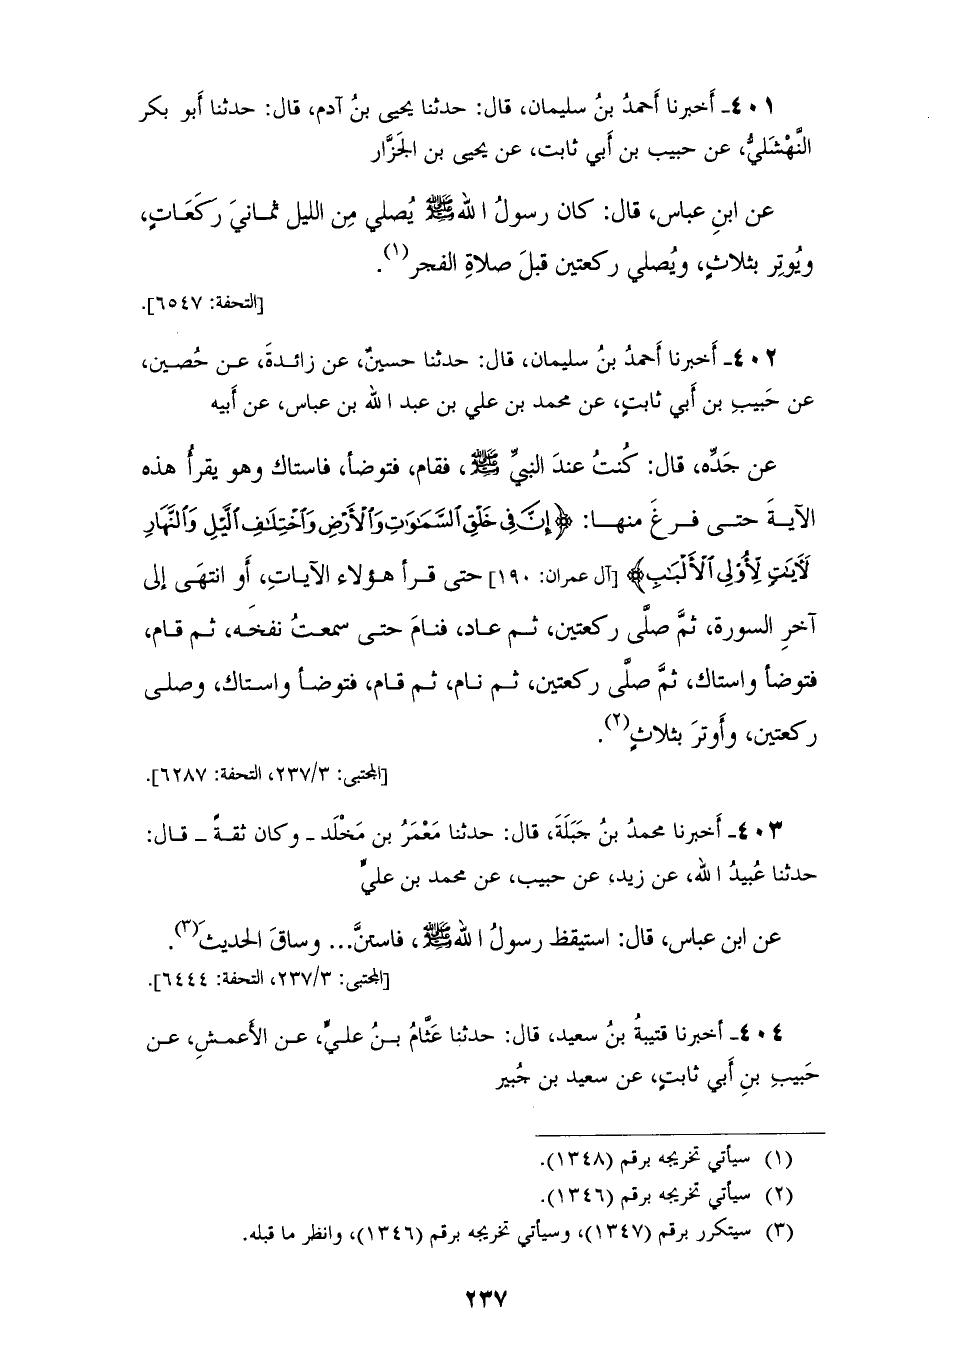 ٤٠١ـ أخبرنا أحمدُ بنُ سليمان، قال: حدثنا يحيى بنُ آدم، قال: حدثنا أبو بكر
النَّهْشَليُّ، عن حبيب بن أبي ثابت، عن يحيى بن الجَزَّار
عن ابنِ عباس، قال: كان رسولُ الله ﷺ يُصلي مِن الليل ثمـانيَ ركَعَـاتٍ،
ويُوتِر بثلاثٍ، ويُصلي ركعتين قبلَ صلاةِ الفجر(١).
[التحفة: ٦٥٤٧].
٤٠٢ـ أخبرنا أحمدُ بنُ سليمان، قال: حدثنا حسينٌ، عن زائـدةَ، عـن حُصـين،
عن حَبيبِ بن أبي ثابتٍ، عن محمد بن علي بن عبد الله بن عباس، عن أبيه
عن جَدِّه، قال: كُنتُ عندَ النبيِّ ﷺ، فقام، فتوضأ، فاستاك وهو يقرأُ هذه
الآيـةَ حتـى فـرغَ منهـا: ﴿إِنَّ فِي خَلْقِ السَّمَٰوَٰتِ وَالْأَرْضِ وَاخْتِلَٰفِ الَّيْلِ وَالنَّهَارِ
لَآيَٰتٍ لِّأُوْلِى الْأَلْبَٰبِ﴾ [آل عمران: ١٩٠] حتى قـرأ هـؤلاء الآيـاتِ، أو انتهَـى إلى
آخرِ السورة، ثمَّ صلَّى ركعتين، ثـم عاد، فنـامَ حتـى سمعـتُ نفخَـه، ثـم قـام،
فتوضأ واستاك، ثمَّ صلَّى ركعتين، ثـم نـام، ثـم قـام، فتوضـأ واسـتاك، وصلـى
ركعتين، وأوترَ بثلاثٍ(٢).
[المجتبى: ٢٣٧/٣، التحفة: ٦٢٨٧].
٤٠٣ـ أخبرنا محمدُ بنُ جَبَلَةَ، قال: حدثنا مَعْمَرُ بن مَخْلَد ـ وكان ثقـةً ـ قـال:
حدثنا عُبيدُ الله، عن زيد، عن حبيب، عن محمد بن عليٍّ
عن ابن عباس، قال: استيقظ رسولُ الله ﷺ، فاستنَّ... وساقَ الحديثَ(٣).
[المجتبى: ٢٣٧/٣، التحفة: ٦٤٤٤].
٤٠٤ـ أخبرنا قتيبةُ بنُ سعيد، قال: حدثنا عَثَّامُ بـنُ علـيٍّ، عـن الأعمـشِ، عـن
حَبيبِ بنِ أبي ثابتٍ، عن سعيد بن جُبير
(١) سيأتي تخريجه برقم (١٣٤٨).
(٢) سيأتي تخريجه برقم (١٣٤٦).
(٣) سيتكرر برقم (١٣٤٧)، وسيأتي تخريجه برقم (١٣٤٦)، وانظر ما قبله.
٢٣٧